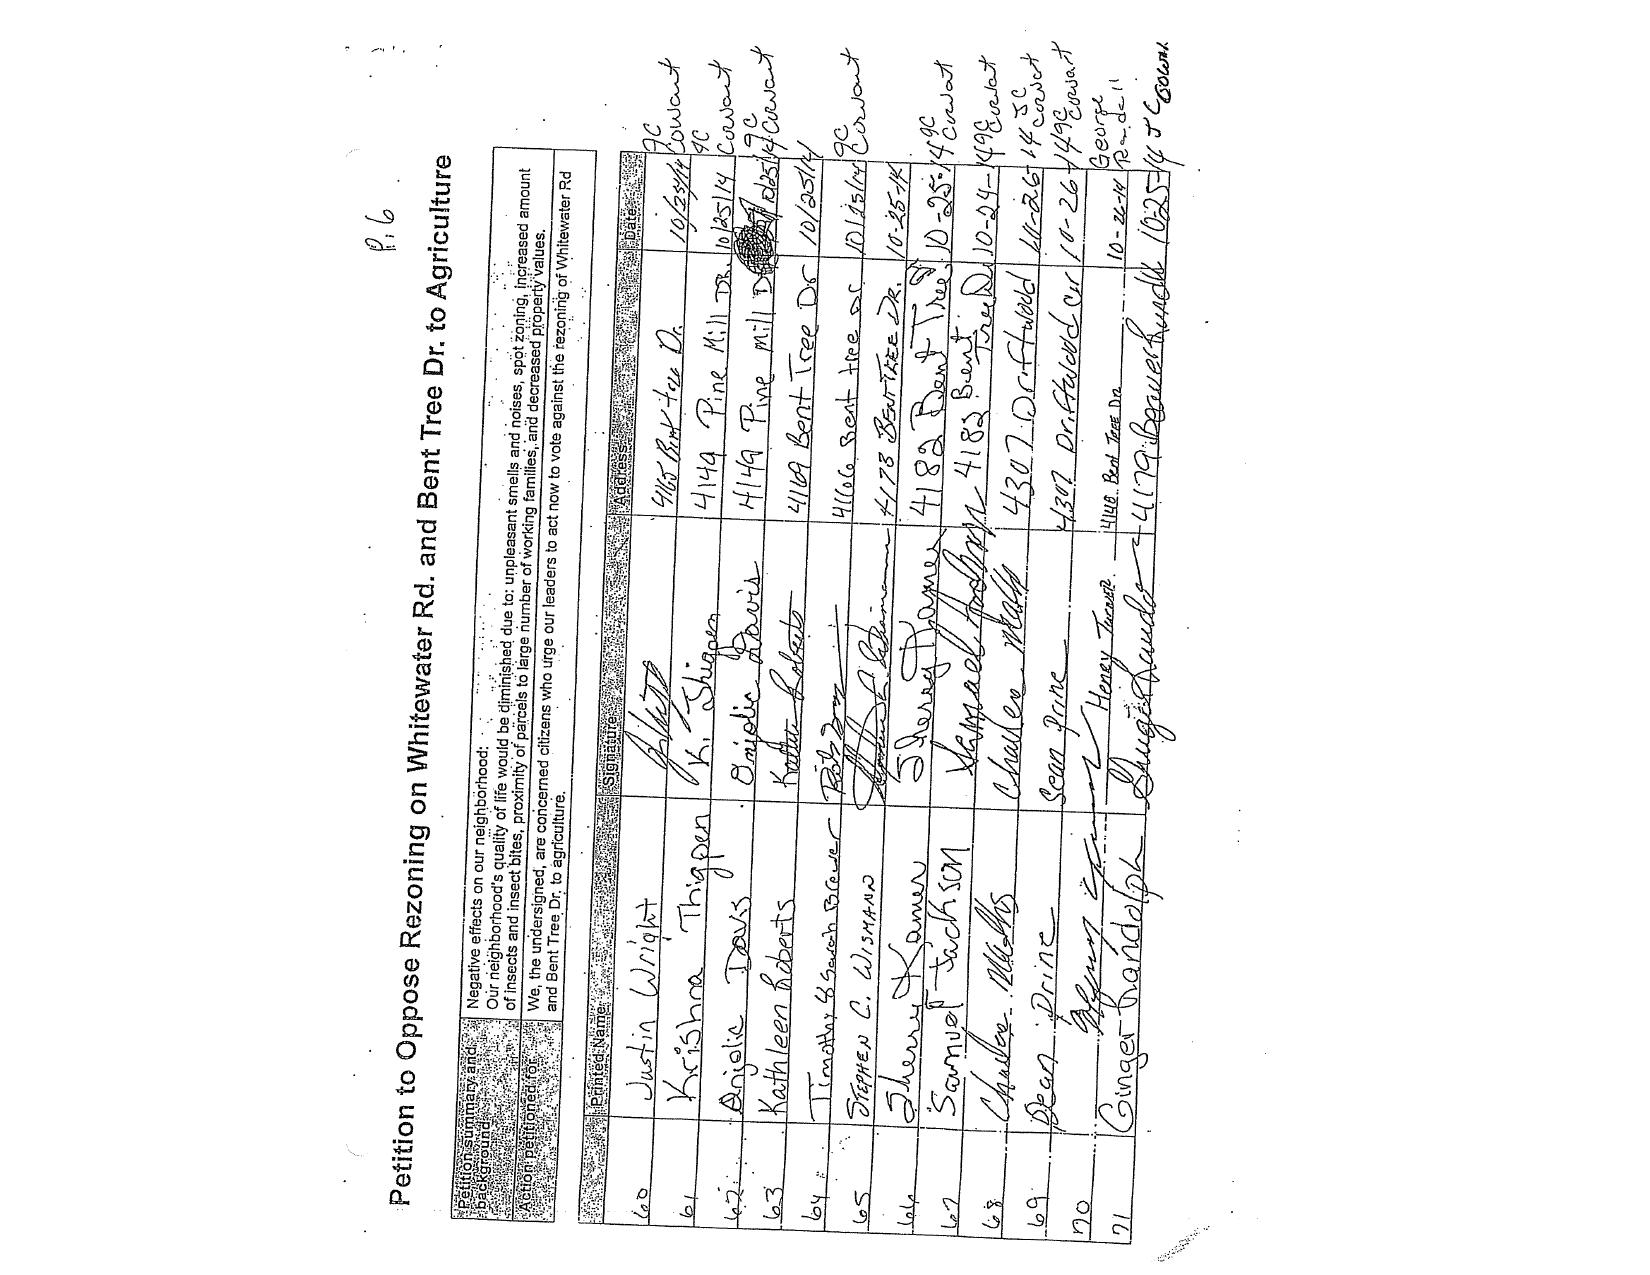 P. 6
Petition to Oppose Rezoning on Whitewater Rd. and Bent Tree Dr. to Agriculture
Petition summary and background
Negative effects on our neighborhood:
Our neighborhood's quality of life would be diminished due to: unpleasant smells and noises, spot zoning, increased amount
of insects and insect bites, proximity of parcels to large number of working families, and decreased property values.
Action petitioned for
We, the undersigned, are concerned citizens who urge our leaders to act now to vote against the rezoning of Whitewater Rd
and Bent Tree Dr. to agriculture.
Printed Name Signature Address Date
60 Justin Wright 4165 Bent tree Dr. 10/25/14 Cowart
61 Krishna Thigpen K. Thigpen 4149 Pine Mill DR. 10/25/14 Cowart
62 Anjolic Davis Anjolic Davis 4149 Pine Mill D 10/25/14 Cowart
63 Kathleen Roberts Kathleen Roberts 4169 Bent Tree Dr 10/25/14
64 Timothy & Sarah Brewer 4166 Bent tree Dr 10/25/14 Cowart
65 STEPHEN C. WISMANN 4173 BENT TREE DR. 10-25-14
66 Sherry Kamer Sherry Kamer 4182 Bent Tree 10-25-14 Cowart
67 Samuel Jackson Samuel Jackson 4182 Bent Tree Dr 10-24-14 Cowart
68 Charles Mathis Charles Mathis 4307 Driftwood 10-26-14 Cowart
69 Dean Prine Sean Prine 4307 Driftwood Cir 10-26-14 Cowart
70 Henry Turner 4148 Bent TREE DR 10-26-14 George Randall
71 Ginger Randolph 4179 Beaver Rundr 10-25-14